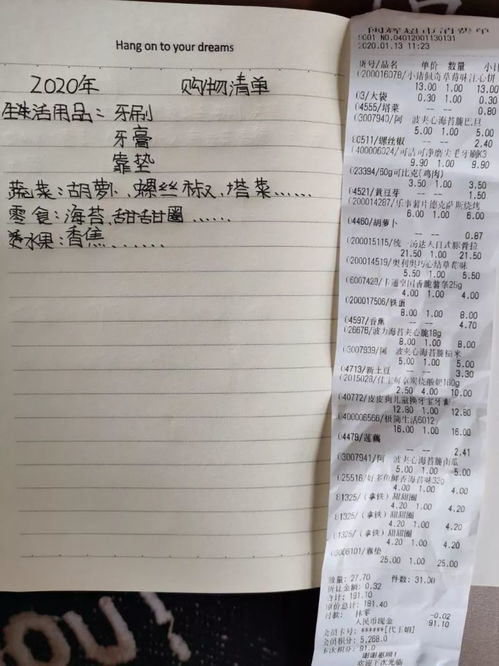 Hang on to your dreams
2020年 购物清单
生活用品：牙刷
牙膏
靠垫
蔬菜：胡萝卜、螺丝椒、塔菜……
零食：海苔、甜甜圈……
水果：香蕉、……
9001 NO.04012001130131
2020.01.13 11:23
货号/品名 单价 数量 小计
13.00 1.00 13.00
(3/大袋
0.30 1.00 0.30
(4555/塔菜
0.80
(3007940/阿 波夹心海苔脆巴旦
5.00 1.00 5.00
80511/螺丝椒
2.40
9.90 1.00 9.90
(23394/60g可比克(鸡肉)
3.50 1.00 3.50
(4521/黄豆芽
1.50
(200014287/乐事薯片德克萨斯烧烤
6.00 1.00 6.00
(4460/胡萝卜
0.87
(200015115/统一汤达人日式豚骨拉
21.50 1.00 21.50
(200014519/奥利奥巧心结草莓味
5.50 1.00 5.50
4.00 1.00 4.00
(200017506/铁蛋
8.00 1.00 8.00
(4597/香蕉
4.70
(26676/波力海苔夹心脆18g
8.00 1.00 8.00
(3007939/阿 波夹心海苔脆糙米
5.00 1.00 5.00
(4713/新土豆
3.30
2.50 4.00 10.00
(40772/皮皮狗儿童换牙宝牙膏
12.80 1.00 12.80
(400006566/极简生活6012
16.00 1.00 16.00
(4479/莲藕
2.41
(3007941/阿 波夹心海苔脆南瓜
5.00 1.00 5.00
(25516/好多鱼鲜香海苔味33g
4.00 1.00 4.00
81325/(拿铁)甜甜圈
4.20 1.00 4.20
81325/(拿铁)甜甜圈
4.20 1.00 4.20
81325/(拿铁)甜甜圈
4.20 1.00 4.20
(3006101/靠垫
25.00 1.00 25.00
数量：27.70 件数：31.00
折让金额：0.32
合计：191.10
原价总计：191.40
付款： 抹零 -0.02
人民币现金 191.10
会员卡号：
会员积分：5,268.0
本次积分：91.0
谢谢惠顾！
欢迎下次光临